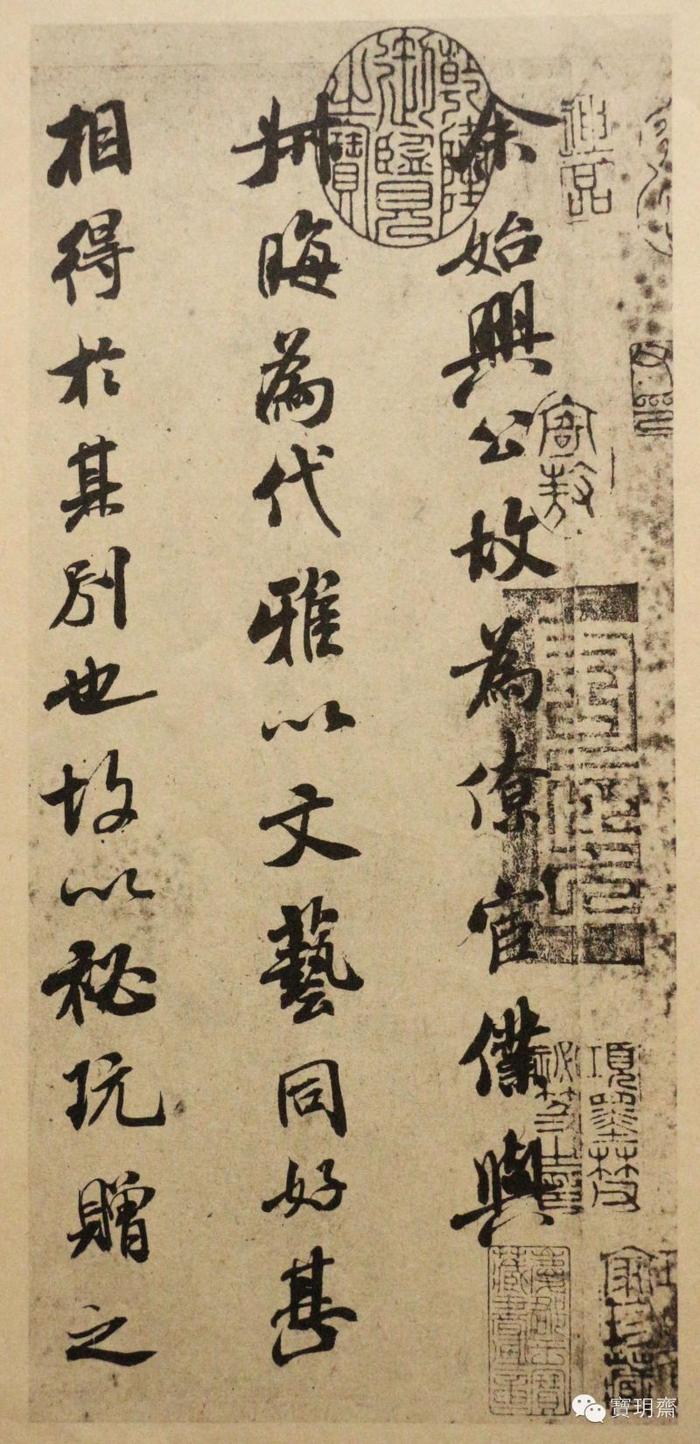 乾隆御覽之寶
余始興公故為僚宦僕與
叔晦為代雅以文藝同好甚
相得於其別也故以祕玩贈之
寶玥齋